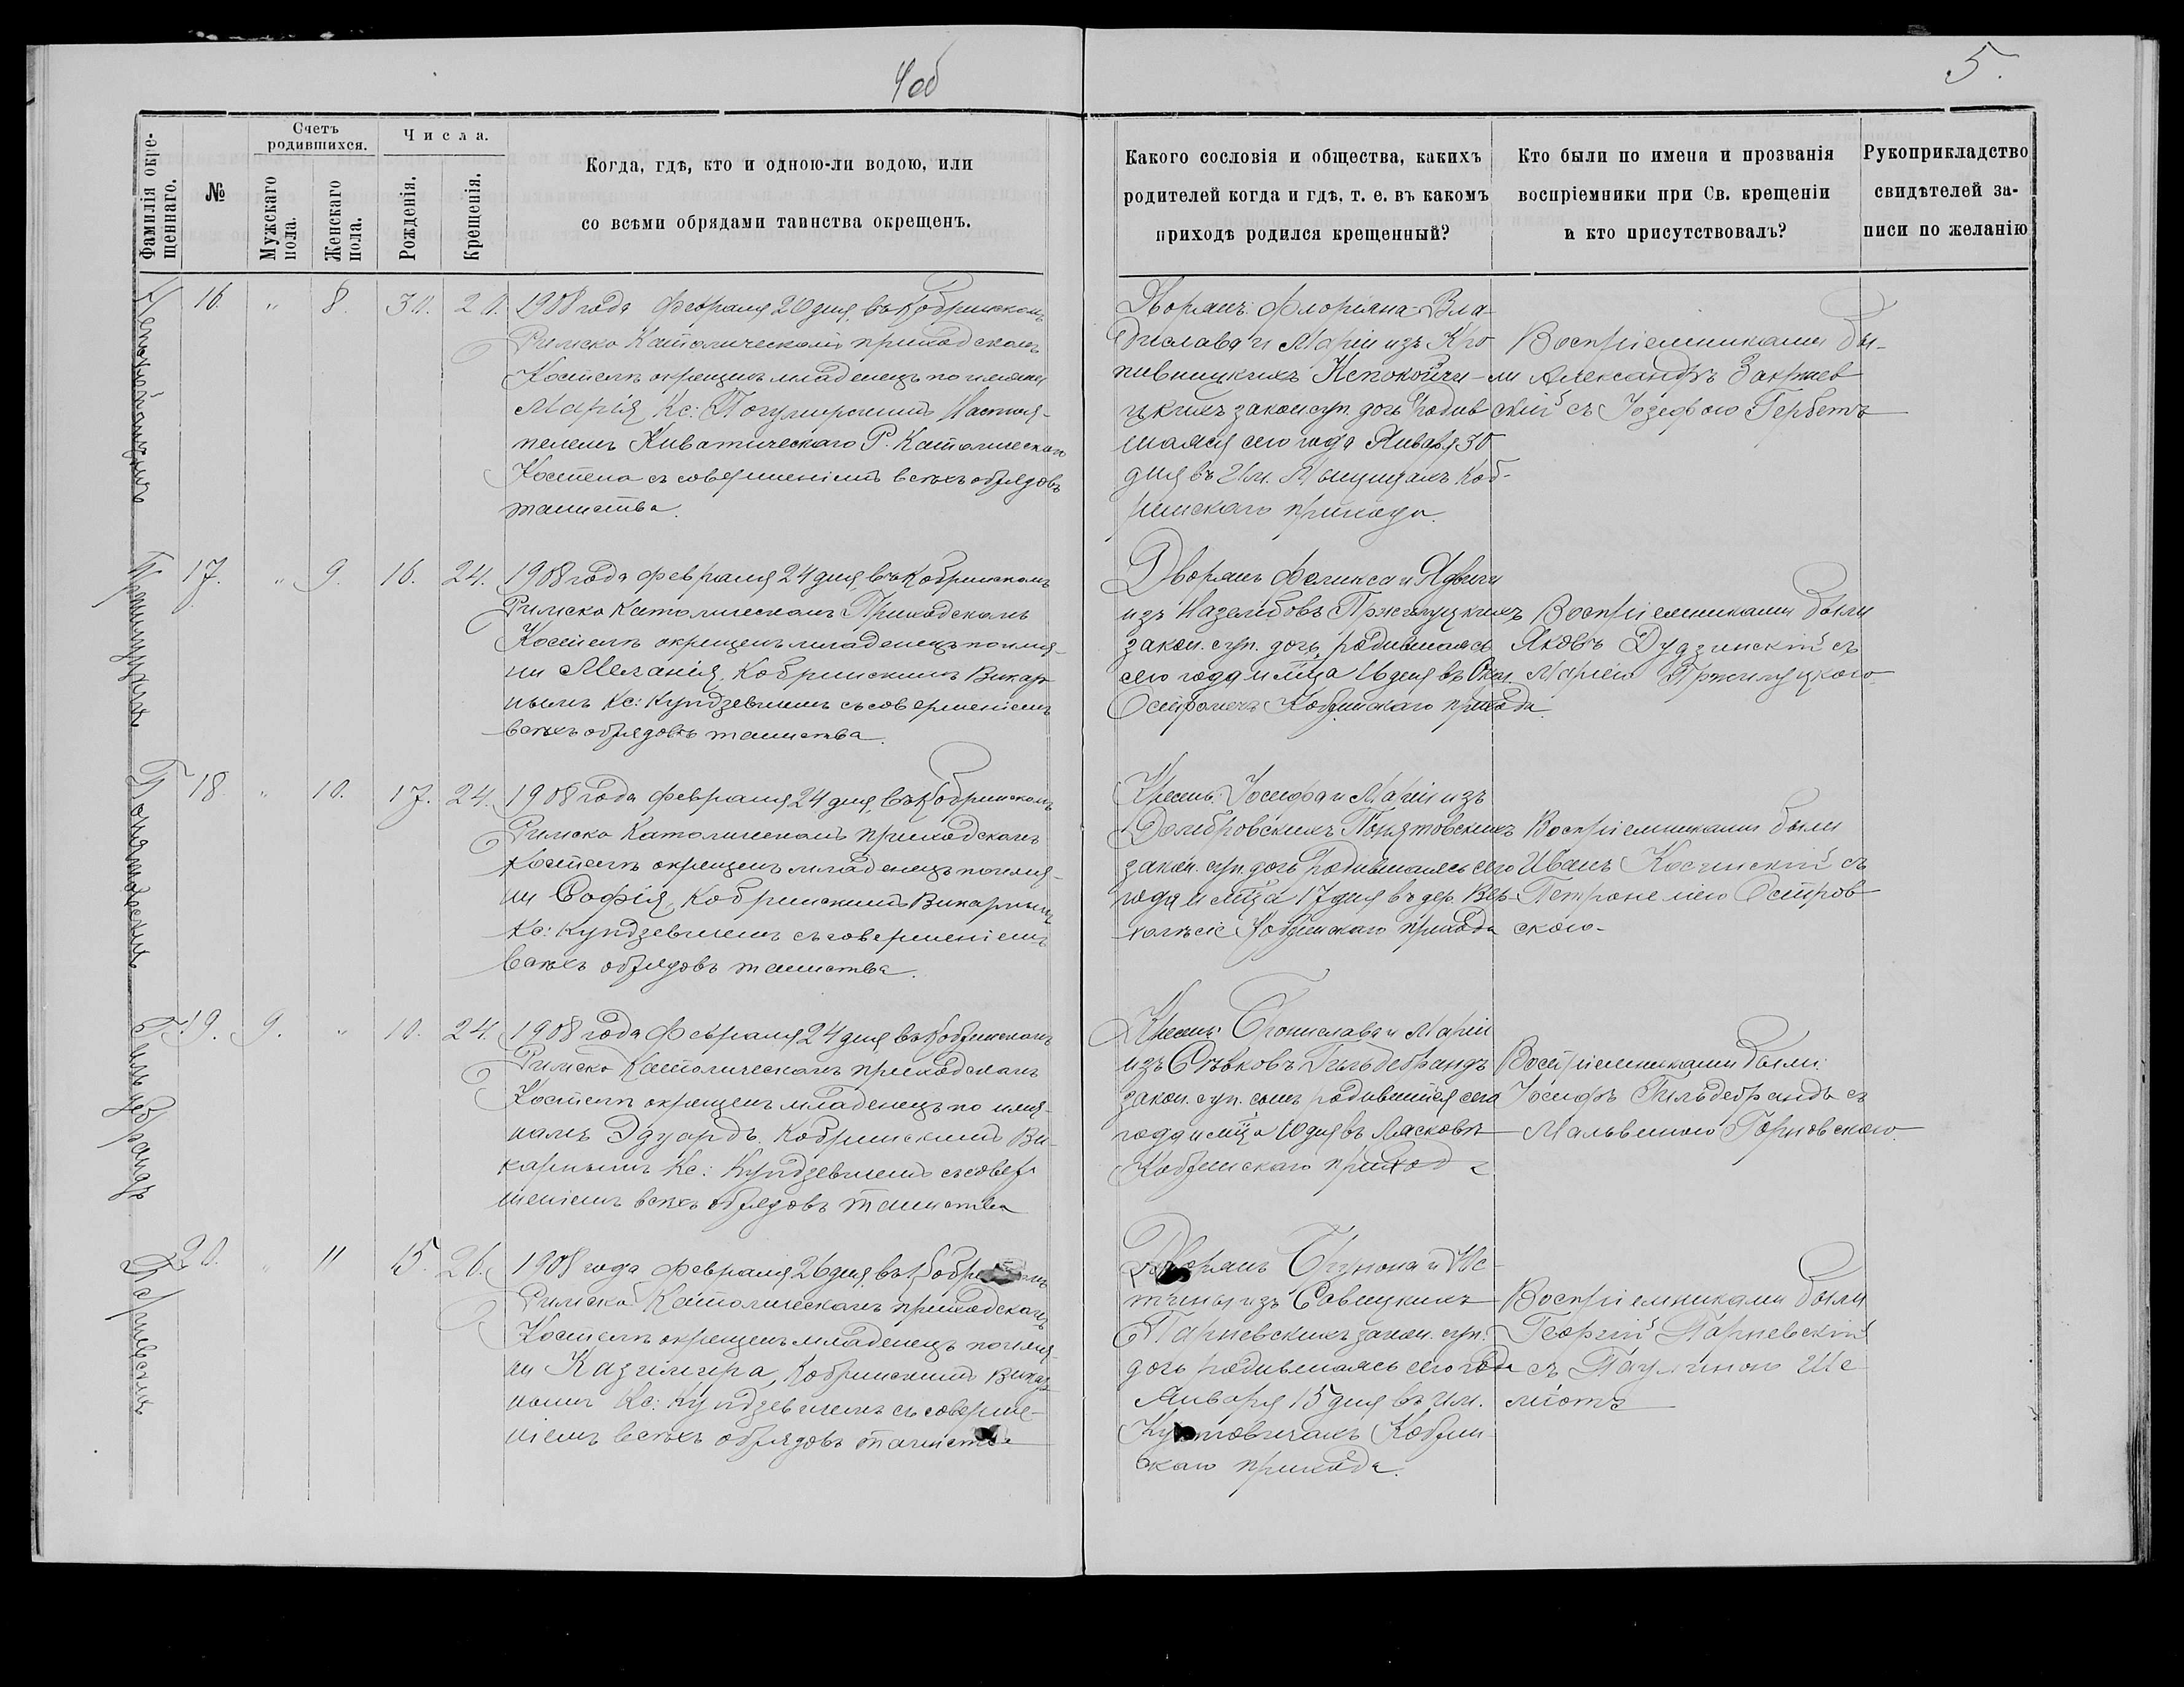 4об
5.
Фамилія окрещеннаго.
№
Счетъ родившихся.
Мужскаго пола.
Женскаго пола.
Числа.
Рожденія.
Крещенія.
Когда, гдѣ, кто и одною-ли водою, или
со всѣми обрядами таинства окрещенъ.
Какого сословія и общества, какихъ
родителей когда и гдѣ, т. е. въ какомъ
приходѣ родился крещенный?
Кто были по имени и прозванія
воспріемники при Св. крещеніи
и кто присутствовалъ?
Рукоприкладство
свидѣтелей за-
писи по желанію
16. " 8. 30. 20.
1908 года Февраля 20 дня, въ Кобринскомъ
Римско Католическомъ приходскомъ
Костелѣ окрещенъ младенецъ по имени
Марія, Кс: Настоя-
телемъ Р. Католическаго
Костела съ совершеніемъ всѣхъ обрядовъ
таинства.
Дворянъ: Флоріана-Вла-
дислава и Маріи изъ Кро
пивницкихъ Непокойчи-
цкихъ закон. суп. дочь родив
шаяся сего года Января 30
дня въ им. Коб-
ринскаго прихода.
Воспріемниками бы-
ли Александръ Закржев
скій съ Іозефою Гербетъ
Пржилуцкихъ
17. " 9. 16. 24.
1908 года Февраля 24 дня, въ Кобринскомъ
Римско Католическомъ Приходскомъ
Костелѣ окрещенъ младенецъ по имя-
ни Меланія, Кобринскимъ Викар
нымъ Кс: Кундзевичемъ съ совершеніемъ
всѣхъ обрядовъ таинства.
Дворянъ Феликса и Ядвиги
изъ Пржилуцкихъ
закон. суп. дочь, родившаяся
сего года и м-ца 16 дня въ
Кобринскаго прихода.
Воспріемниками были
Яковъ Дудзинскій съ
Маріею Пржилуцкою
Понятовскихъ
18. " 10. 17. 24.
1908 года Февраля 24 дня, въ Кобринскомъ
Римско Католическомъ приходскомъ
Костелѣ окрещенъ младенецъ по имя-
ни Софія, Кобринскимъ Викарнымъ
Кс: Кундзевичемъ съ совершеніемъ
всѣхъ обрядовъ таинства.
Крест: Іосифа и Маріи изъ
Домбровскихъ Понятовскихъ
закон. суп. дочь родившаяся сего
года и м-ца 17 дня въ дер. Вер-
холѣсіе Кобринскаго прихода
Воспріемниками были
Иванъ Косчинскій съ
Петронелею Остров
скою-
Гильдебрандъ
19. 9. " 10. 24.
1908 года Февраля 24 дня въ Кобринскомъ
Римско Католическомъ приходскомъ
Костелѣ окрещенъ младенецъ по имя-
намъ Эдуардъ. Кобринскимъ Ви-
карнымъ Кс: Кундзевичемъ съ совер
шеніемъ всѣхъ обрядовъ таинства
Крест: и Маріи
изъ Гильдебрандъ
закон. суп. сынъ родившійся сего
года и м-ца 10 дня въ Лясковѣ
Кобринскаго прихода
Воспріемниками были:
Іосифъ Гильдебрандъ съ
Мальвиною Горновскою.
Парневскихъ
20. " 11 15. 26.
1908 года Февраля 26 дня, въ
Римско Католическомъ приходскомъ
Костелѣ окрещенъ младенецъ по имя-
ни Казимира, Кобринскимъ Викар
нымъ Кс: Кундзевичемъ съ соверше-
ніемъ всѣхъ обрядовъ таинства
Дворянъ и Юс-
тины изъ Савицкихъ
Парневскихъ закон. суп.
дочь родившаяся сего года
Января 15 дня въ им.
Кобрин
скаго прихода.
Воспріемниками были
Георгій Парневскій
съ Паулиною Ше